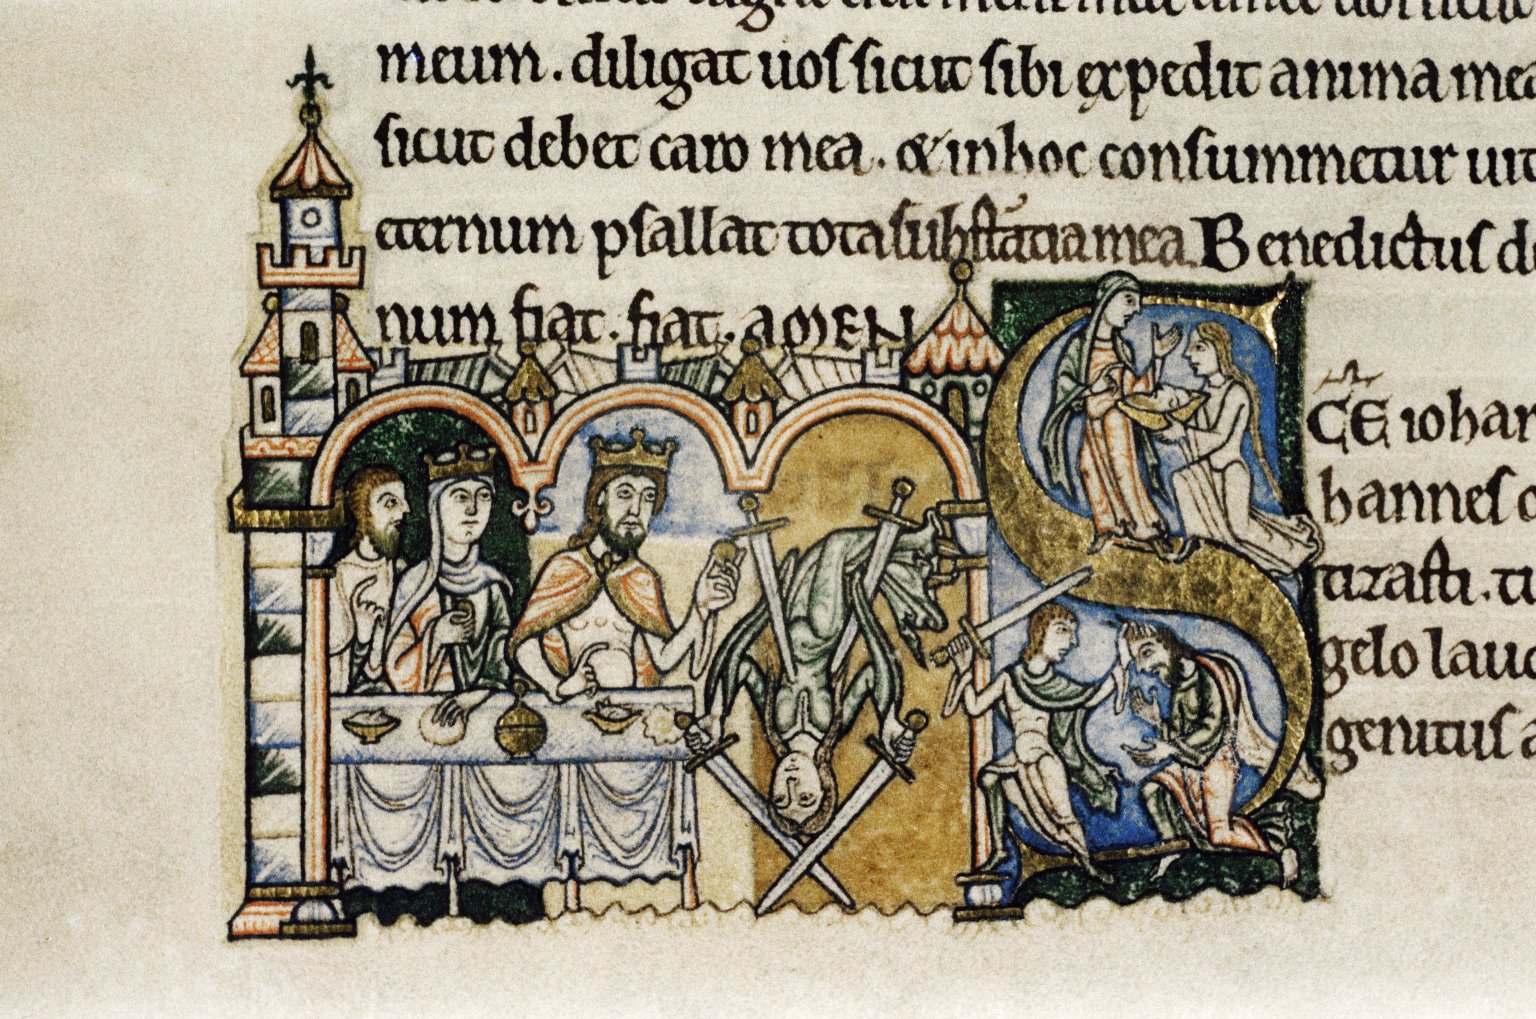 meum . diligat uos sicut sibi expedit anima mea
sicut debet caro mea . & in hoc consummetur uit
eternum psallat tota substātia mea . Benedictus d
num fiat . fiat . AMEN
S CE iohan
hannes
tizasti . tu
gelo laud
genitus a